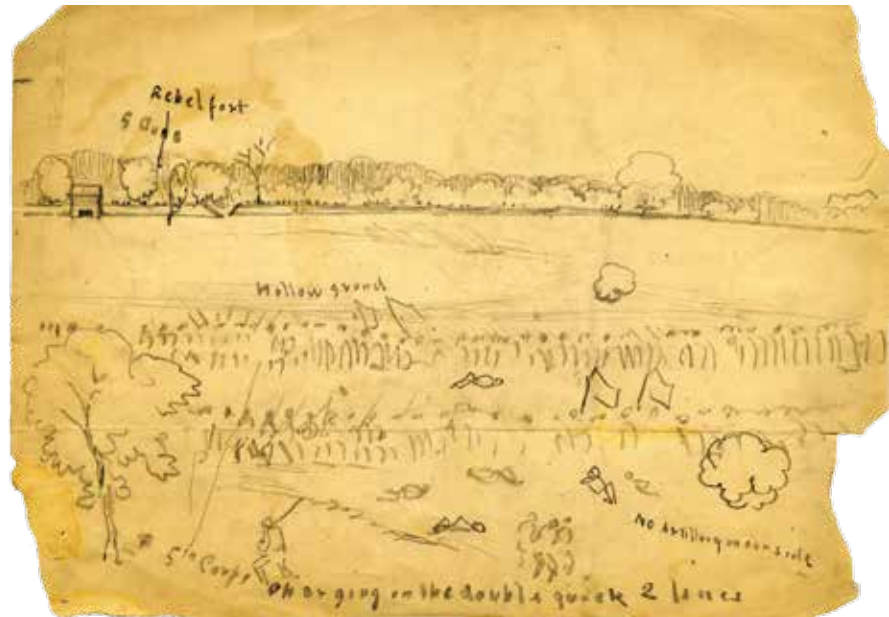 Rebel fort
5 Guns
Hollow ground
No Artillery on our side
5th Corps
Charging on the double quick 2 lines